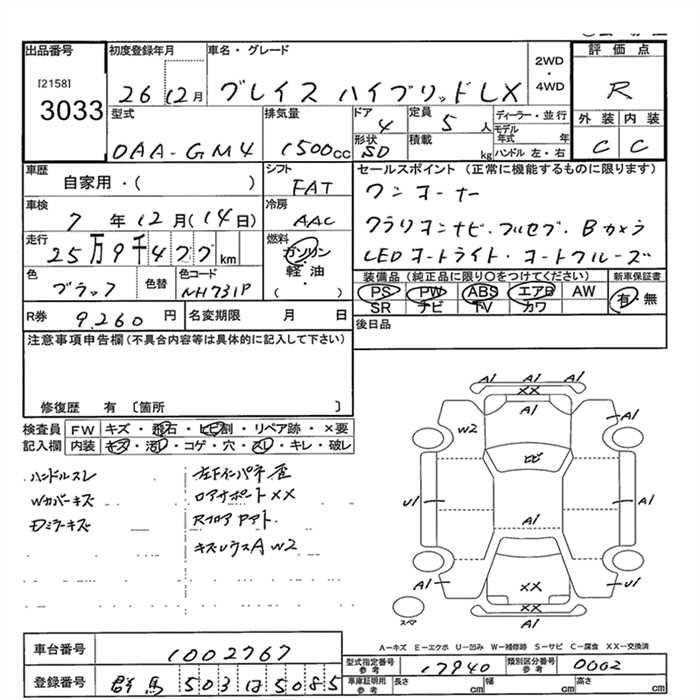 出品番号
[2158]
3033
初度登録年月
26 12月
車名・グレード
グレイス ハイブリッドLX
2WD
・
4WD
評価点
R
型式
DAA-GM4
排気量
1500cc
ドア
4
形状
SD
定員
5人
積載
kg
ディーラー・並行
モデル年式 年
ハンドル 左・右
外装
C
内装
C
車歴
自家用・( )
シフト
FAT
車検
7年12月(14日)
冷房
AAC
走行
25万9千4 km
燃料
ガソリン
軽油
( )
色
ブラック
色替
色コード
NH731P
セールスポイント (正常に機能するものに限ります)
ワンオーナー
クラリオンナビ・フルセグ・Bカメラ
LEDオートライト・オートクルーズ
装備品(純正品に限り○をつけてください)
PS PW ABS エアB AW
SR ナビ TV カワ
新車保証書
有・無
R券
9.260円
名変期限 月 日
後日品
注意事項申告欄(不具合内容等は具体的に記入して下さい)
修復歴 有 〔箇所 〕
検査員
記入欄
FW キズ・飛石・ヒビ割・リペア跡・×要
内装 キズ・汚レ・コゲ・穴・スレ・キレ・破レ
ハンドルスレ
Wカバーキズ
Dミラーキズ
左下インパネ歪
ロアサポートXX
Rフロア アト.
キズレウスA W2
A1 A1 A1
XX
W2
A1
ヒビ
U1
A1
A1
A1
XX
U1
A1 XX A1
スペア
A-キズ E-エクボ U-凹み W-補修跡 S-サビ C-腐食 XX-交換済
車台番号
1002767
登録番号
群馬 503 5085
型式指定番号
参考
17940
類別区分番号
参考
0002
車庫証明用
参考
長さ cm
幅 cm
高さ cm